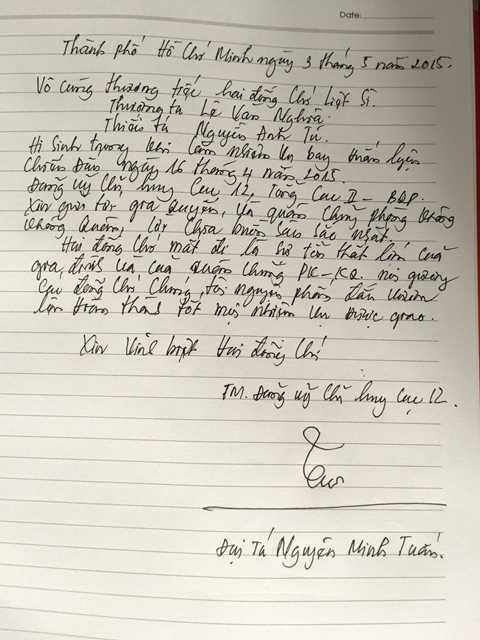 Date:
Thành phố Hồ Chí Minh ngày 3 tháng 5 năm 2015.
Vô cùng thương tiếc hai đồng chí Liệt Sĩ.
Thượng tá Lê Văn Nghĩa.
Thiếu tá Nguyễn Anh Tú.
Hi sinh trong khi làm nhiệm vụ bay huấn luyện
Chiến đấu ngày 16 tháng 4 năm 2015.
Đảng uỷ Chỉ huy Cục 12, Tổng Cục II - BQP.
Xin gửi tới gia quyến, và quân chủng phòng không
không quân, lời chia buồn sâu sắc nhất.
Hai đồng chí mất đi là sự tổn thất lớn của
gia đình và của quân chủng PK-KQ. noi gương
các đồng chí chúng tôi nguyện phấn đấu vươn
lên hoàn thành tốt mọi nhiệm vụ được giao.
Xin Vĩnh biệt Hai đồng chí
TM. Đảng uỷ chỉ huy cục 12.
Đại Tá Nguyễn Minh Tuấn.